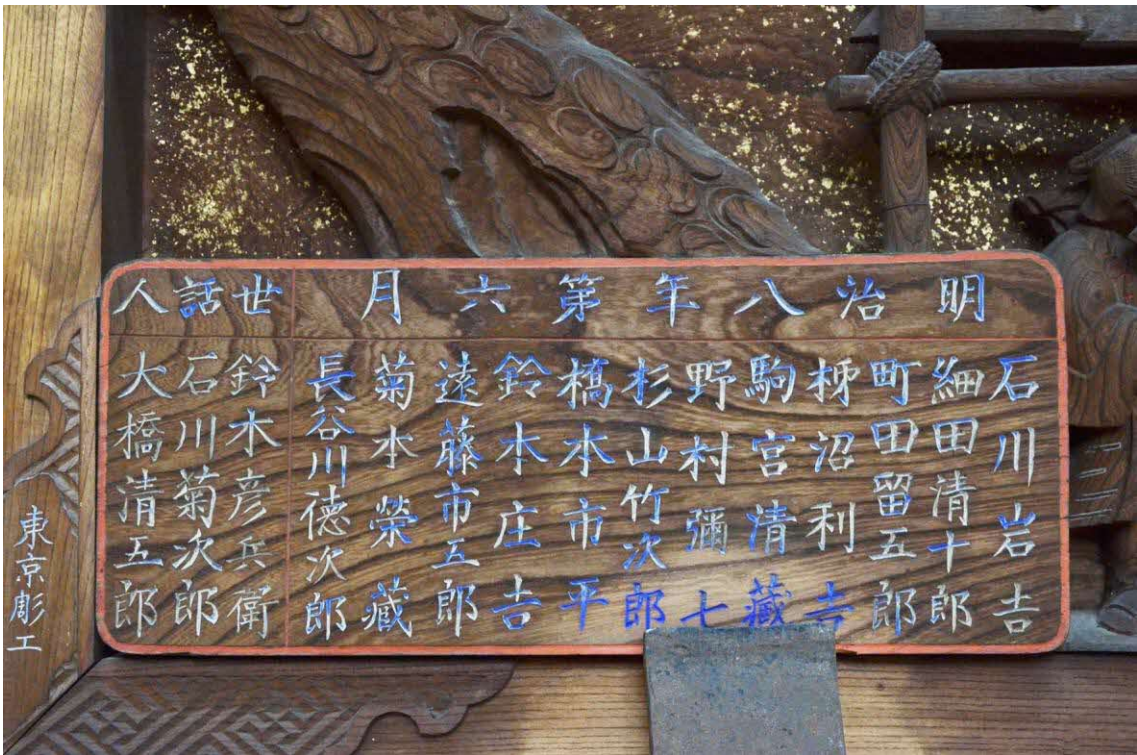 明治八年第六月
石川岩吉
細田清十郎
町田留五郎
柹沼利吉
駒宮清藏
野村彌七
杉山竹次郎
橋本市平
鈴木庄吉
遠藤市五郎
菊本榮藏
長谷川德次郎
世話人
鈴木彦兵衛
石川菊次郎
大橋清五郎
東京彫工